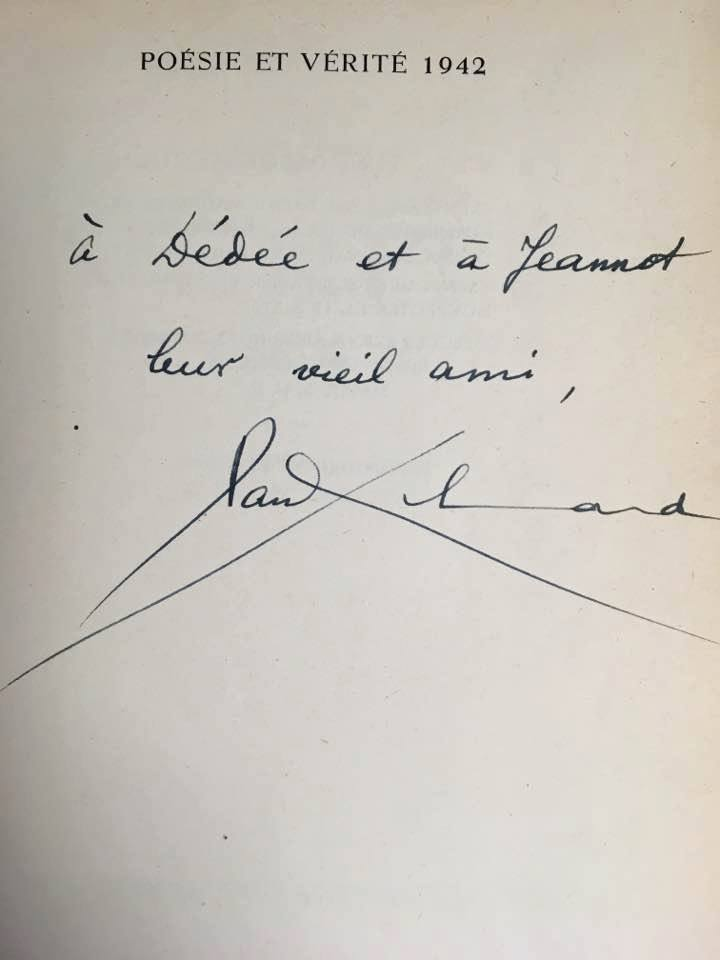 POÉSIE ET VÉRITÉ 1942
à Dédée et à Jeannot
leur vieil ami,
Paul Eluard